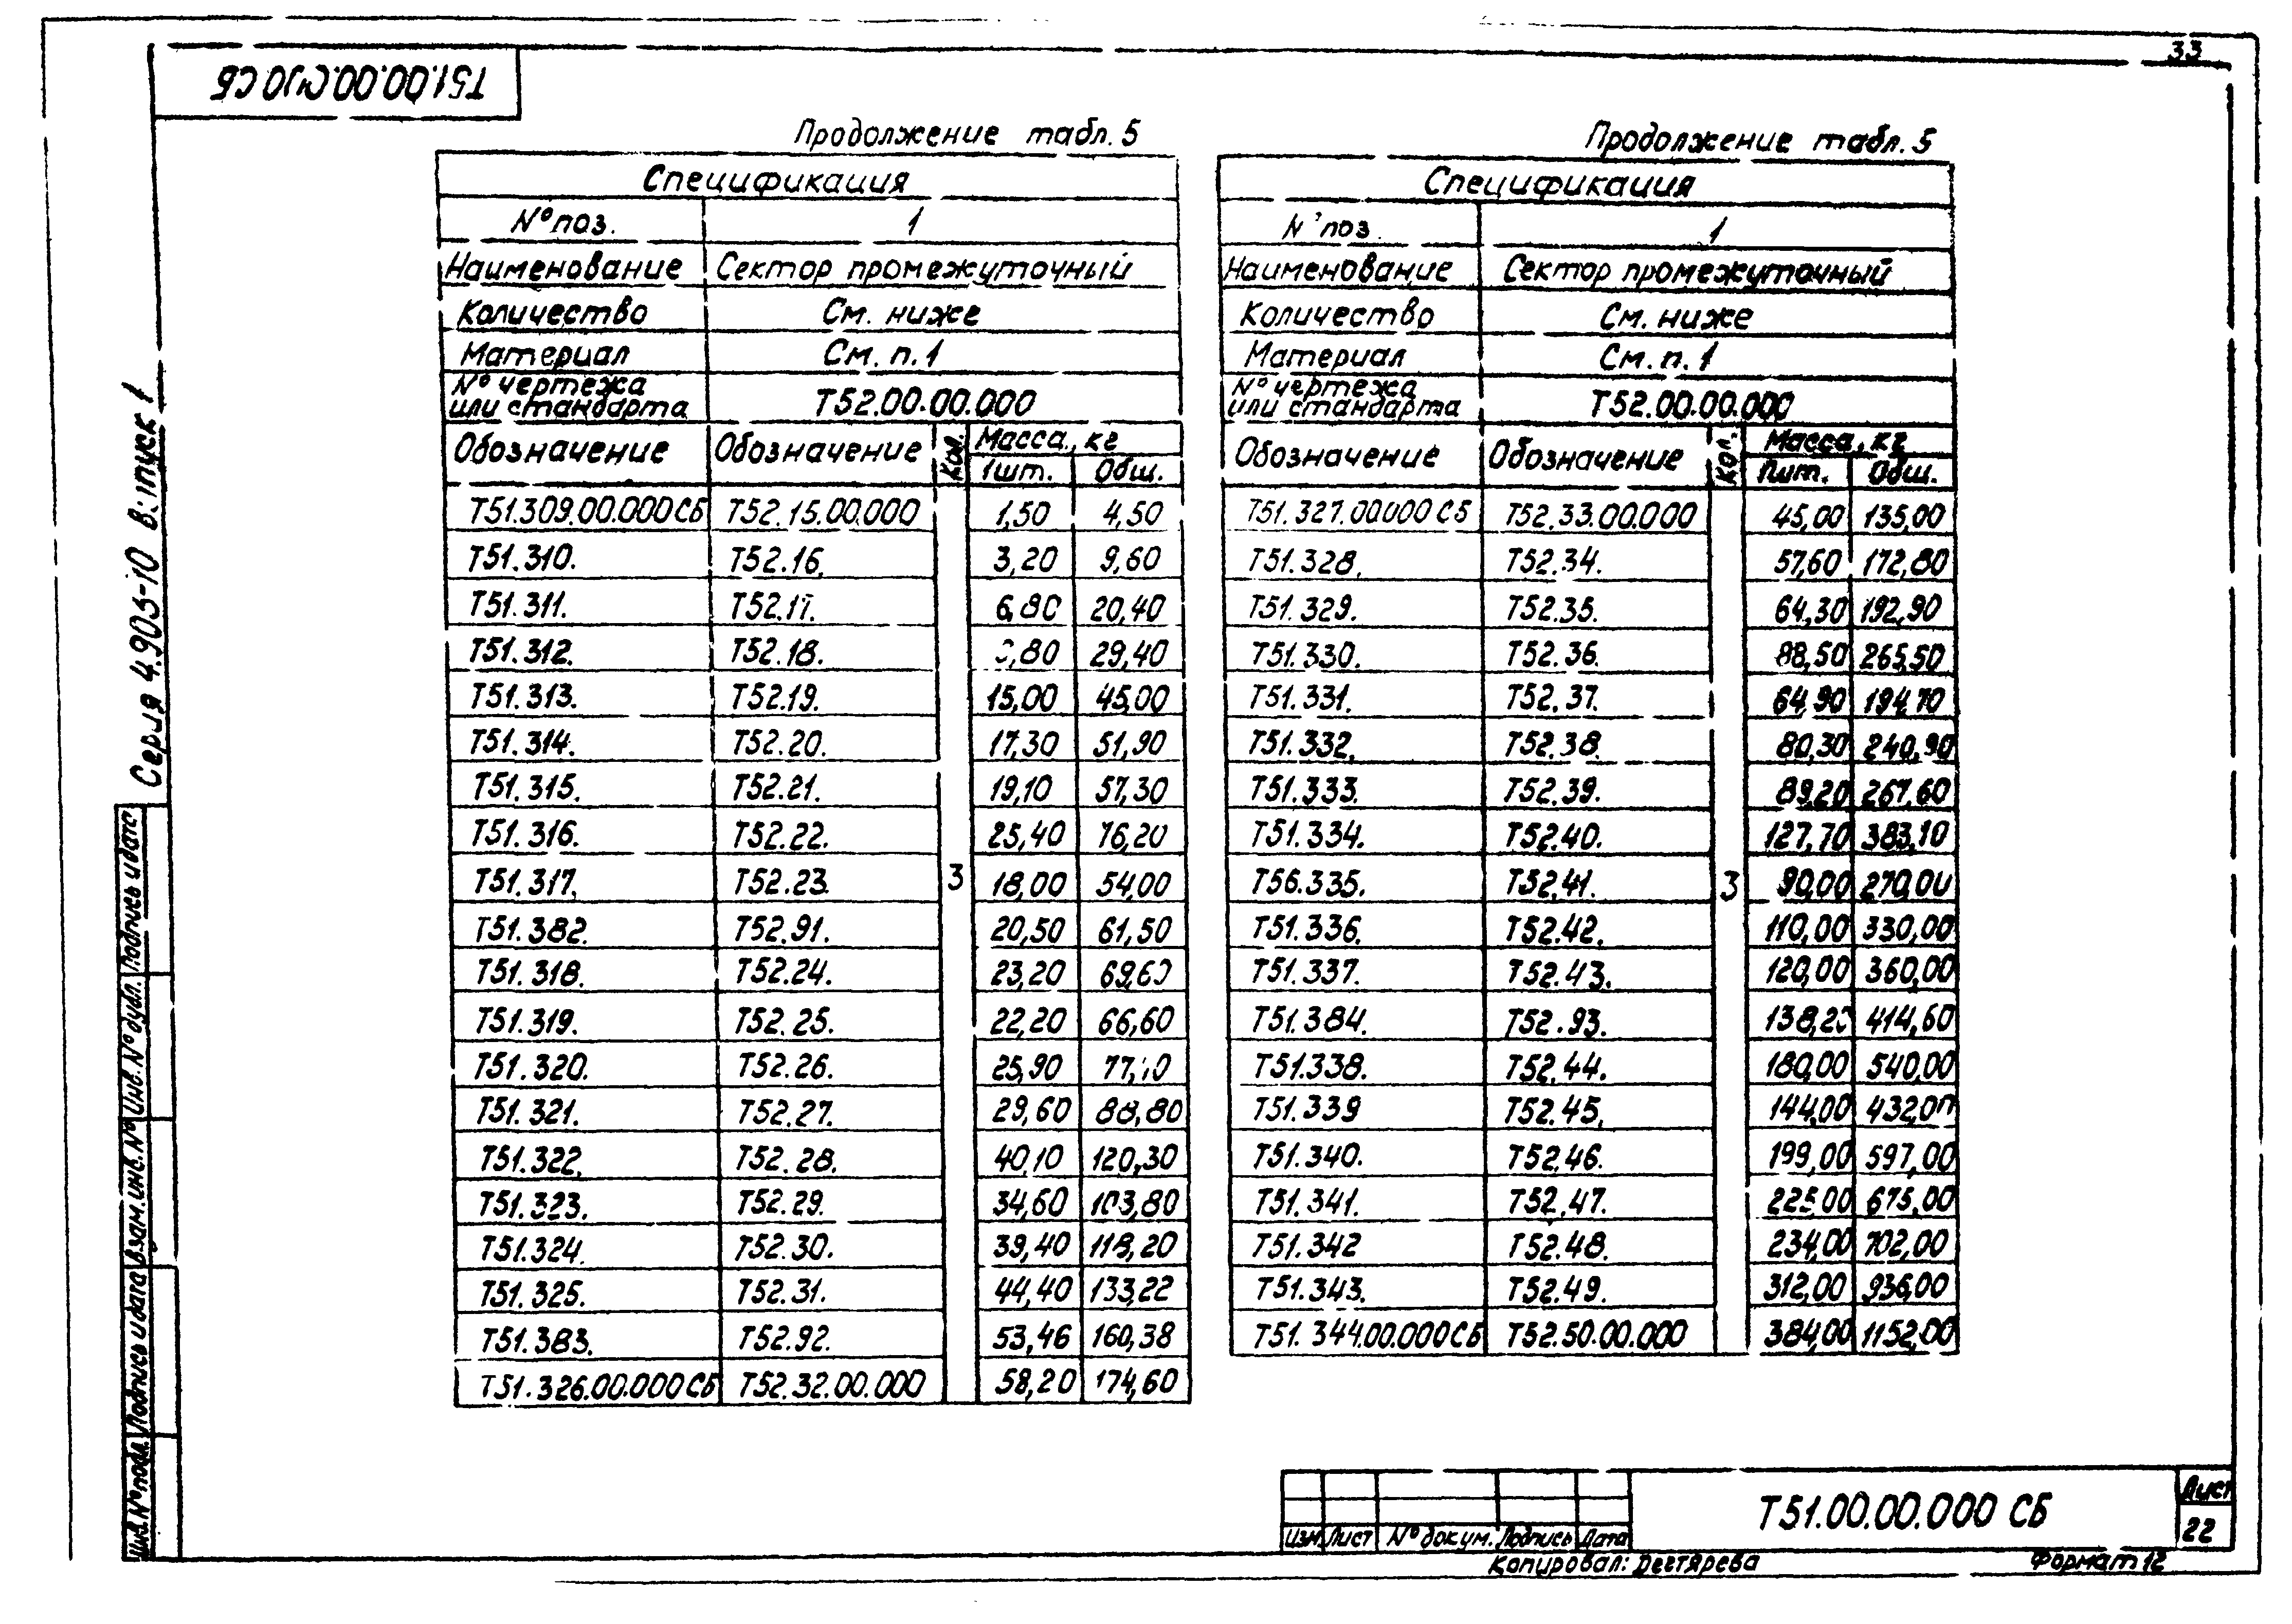 33
Т51.00.00.000 СБ
Серия 4.903-10 Выпуск 1
Продолжение табл. 5
Спецификация
№ поз. 1
Наименование Сектор промежуточный
Количество См. ниже
Материал См. п. 1
№ чертежа
или стандарта Т52.00.00.000
Обозначение Обозначение Кол. Масса, кг
1шт. Общ.
Т51.309.00.000 СБ Т52.15.00.000 1,50 4,50
Т51.310. Т52.16. 3,20 9,60
Т51.311. Т52.17. 6,80 20,40
Т51.312. Т52.18. ,80 29,40
Т51.313. Т52.19. 15,00 45,00
Т51.314. Т52.20. 17,30 51,90
Т51.315. Т52.21. 19,10 57,30
Т51.316. Т52.22. 25,40 76,20
Т51.317. Т52.23. 3 18,00 54,00
Т51.382. Т52.91. 20,50 61,50
Т51.318. Т52.24. 23,20 69,60
Т51.319. Т52.25. 22,20 66,60
Т51.320. Т52.26. 25,90
Т51.321. Т52.27. 29,60 88,80
Т51.322. Т52.28. 40,10 120,30
Т51.323. Т52.29. 34,60 103,80
Т51.324. Т52.30. 39,40 118,20
Т51.325. Т52.31. 44,40 133,22
Т51.383. Т52.92. 53,46 160,38
Т51.326.00.000 СБ Т52.32.00.000 58,20 174,60
Продолжение табл. 5
Спецификация
№ поз. 1
Наименование Сектор промежуточный
Количество См. ниже
Материал См. п. 1
№ чертежа
или стандарта Т52.00.00.000
Обозначение Обозначение Кол. Масса, кг
1шт. Общ.
Т51.327.00.000 СБ Т52.33.00.000 45,00 135,00
Т51.328. Т52.34. 57,60 172,80
Т51.329. Т52.35. 64,30 192,90
Т51.330. Т52.36. 88,50 265,50
Т51.331. Т52.37. 64,90 194,70
Т51.332. Т52.38. 80,30 240,90
Т51.333. Т52.39. 89,20 267,60
Т51.334. Т52.40. 127,70 383,10
Т56.335. Т52.41. 3 90,00 270,00
Т51.336. Т52.42. 110,00 330,00
Т51.337. Т52.43. 120,00 360,00
Т51.384. Т52.93. 138,20 414,60
Т51.338. Т52.44. 180,00 540,00
Т51.339 Т52.45. 144,00 432,00
Т51.340. Т52.46. 199,00 597,00
Т51.341. Т52.47. 225,00 675,00
Т51.342 Т52.48. 234,00 702,00
Т51.343. Т52.49. 312,00 936,00
Т51.344.00.000 СБ Т52.50.00.000 384,00 1152,00
Инв. № подл. Подпись и дата Взам. инв. № Инв. № дубл. Подпись и дата
Изм. Лист № докум. Подпись Дата
Т51.00.00.000 СБ
Лист
22
Копировал: Дегтярева Формат 12